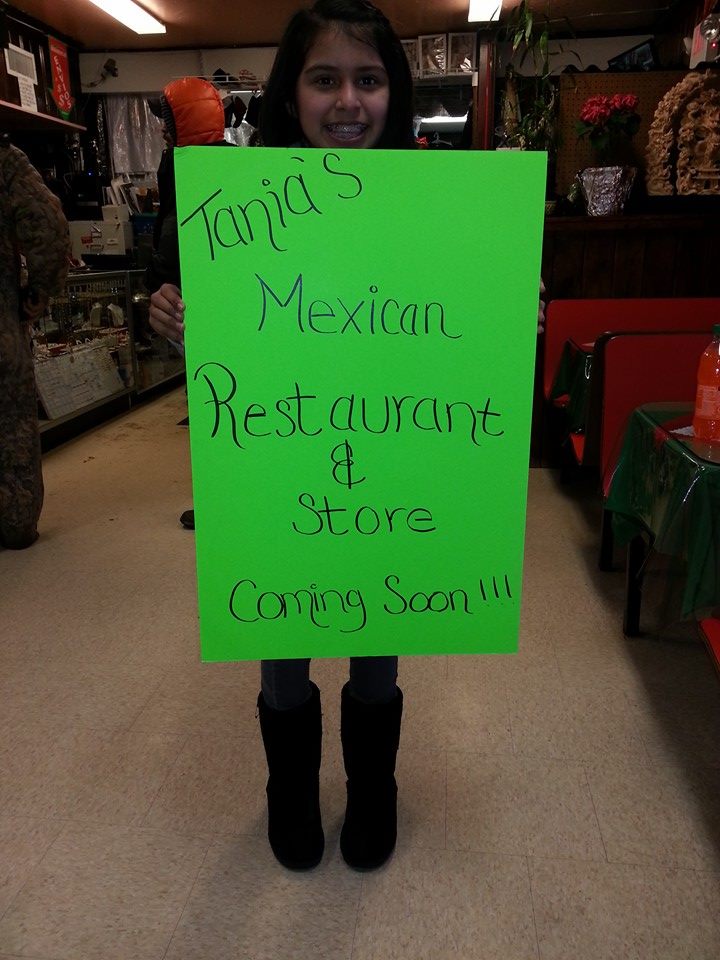 Tania's
Mexican
Restaurant
&
Store
Coming Soon!!!